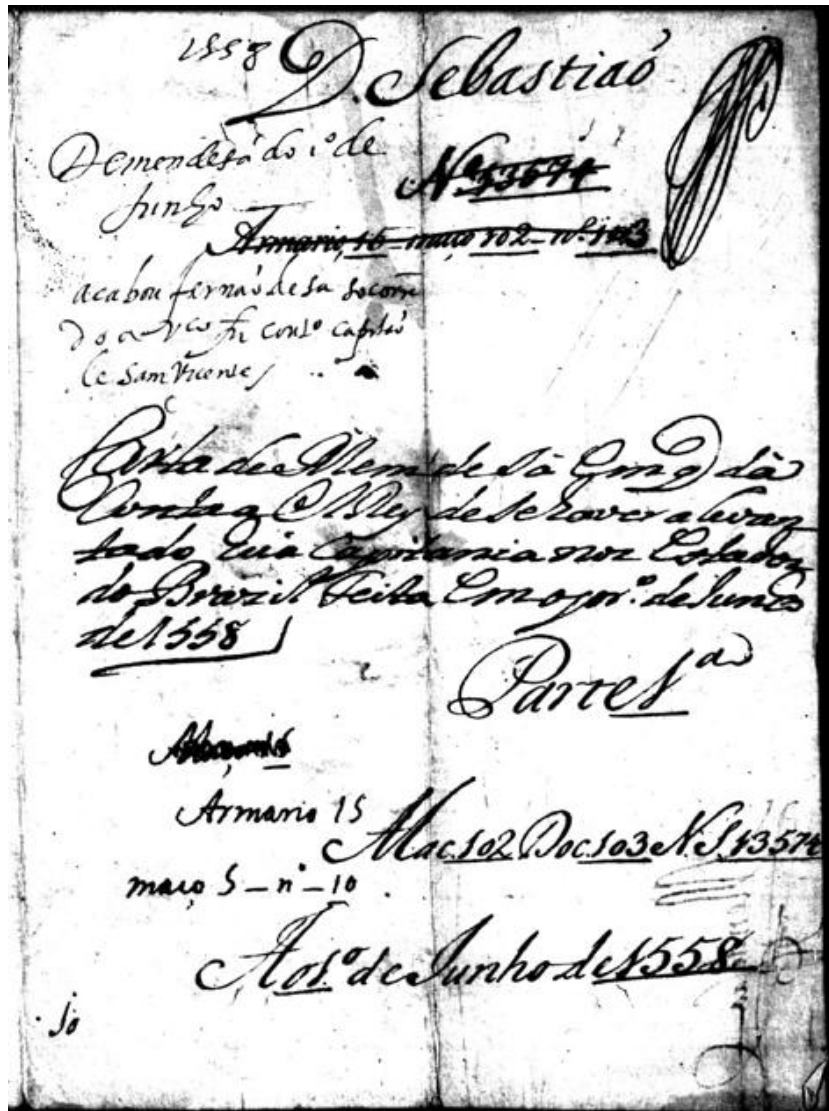 1558
D. Sebastiaõ
De mendesá do 1º de
Junho
Nº 13574
Armario 16 maço 102 nº 103
acabou fernaõ de sa socorre
do a vco fr
capitaõ
de Sam Vicente
Carta de Mem de Sá Em q dá
Conta a ElRey de se haver alevan
tado hũa Capitania nos Estados
do Brazil Feita Em o prº. de Junho
de 1558
Parte 1ª
Armario 15
Mac. 102 Doc. 103 N. S. 13574
maço 5 – nº – 10
Ao 1º de Junho de 1558
10